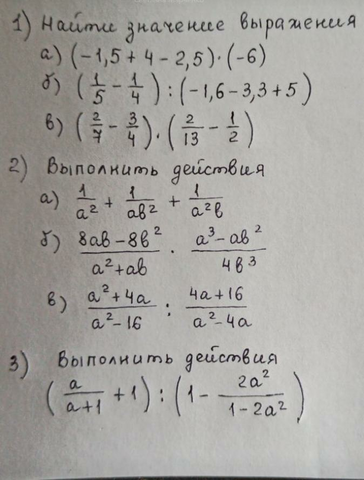 1) Найти значение выражения
а) (-1,5 + 4 - 2,5) · (-6)
б) (1/5 - 1/4) : (-1,6 - 3,3 + 5)
в) (2/7 - 3/4) · (2/13 - 1/2)
2) Выполнить действия
а) 1/a² + 1/ab² + 1/a²b
б) (8ab - 8b²)/(a² + ab) · (a³ - ab²)/(4b³)
в) (a² + 4a)/(a² - 16) : (4a + 16)/(a² - 4a)
3) Выполнить действия
(a/(a+1) + 1) : (1 - 2a²/(1 - 2a²))